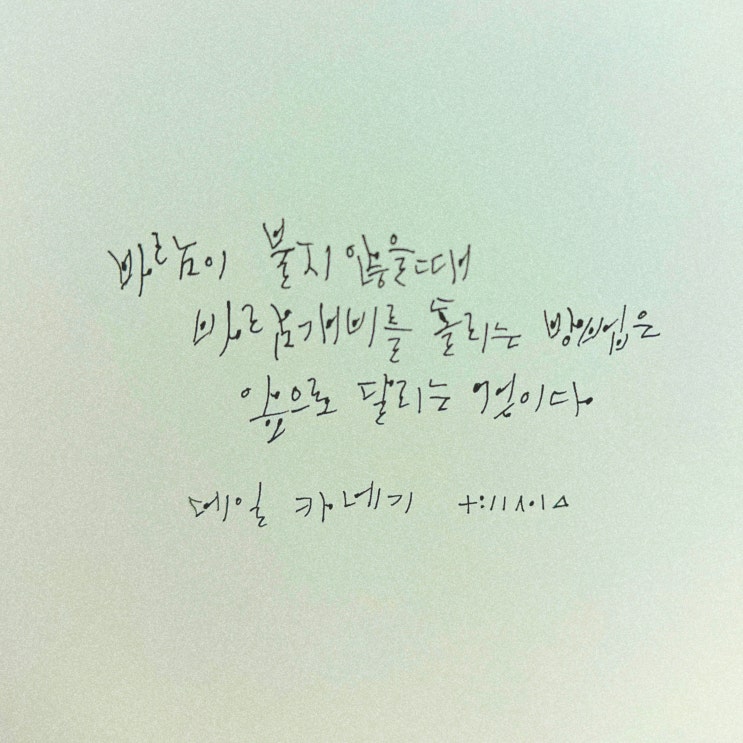 바람이 불지 않을때
바람개비를 돌리는 방법은
앞으로 달리는 것이다.
데일 카네기